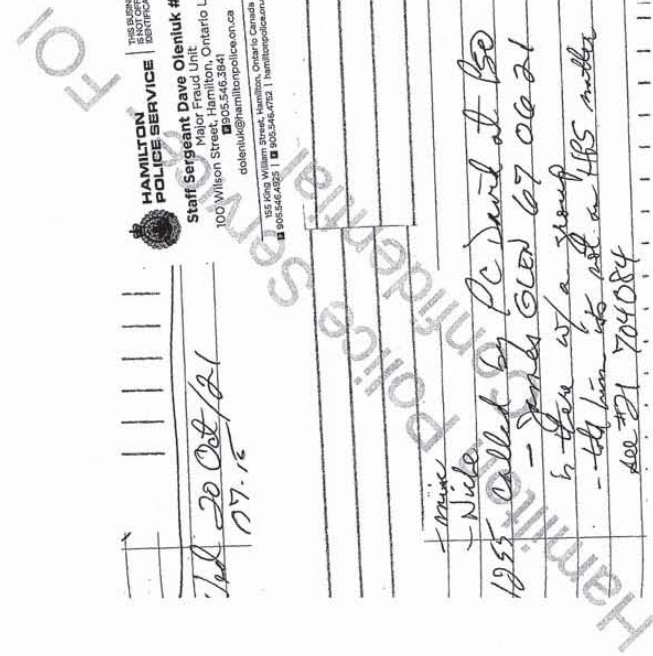 THIS BUSIN
IS NOT OFF
IDENTIFICA
HAMILTON
POLICE SERVICE
Staff Sergeant Dave Oleniuk #
Major Fraud Unit
100 Wilson Street, Hamilton, Ontario L
905.546.3841
doleniuk@hamiltonpolice.on.ca
155 King William Street, Hamilton, Ontario Canada
905.546.4925 | 905.546.4752 | hamiltonpolice.on.
Wed 20 Oct/21
07.15
- Nick
1255 called by PC David at
- James GLEN 67 06 21
is there w/ a group
- tell him its not a HPS matter
see #21 704084
Hamilton Police Service
Confidential
FOI